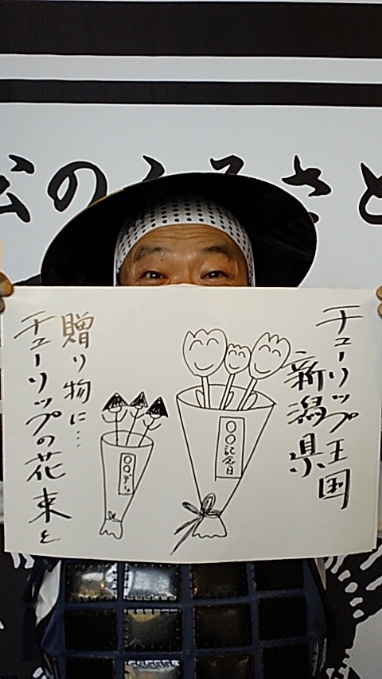 のふるさと
チューリップ王国
新潟県
〇〇記念日
〇〇デー
贈り物に…
チューリップの花束を